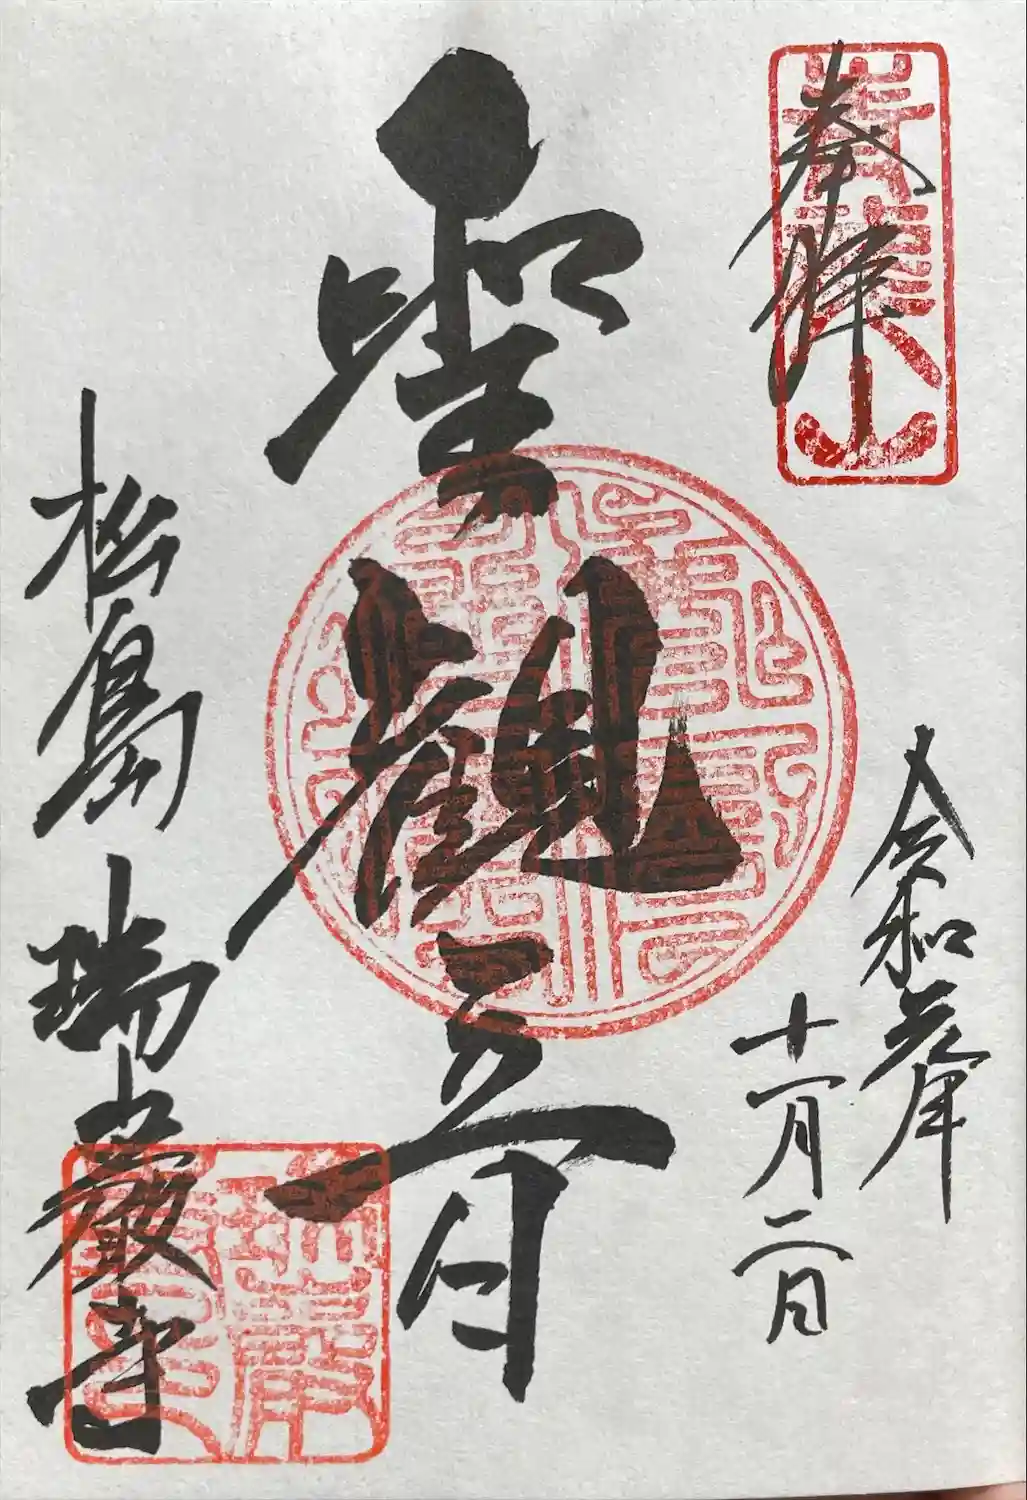 奉拝
青龍山
令和元年
十一月二日
聖觀音
松島 瑞巌寺